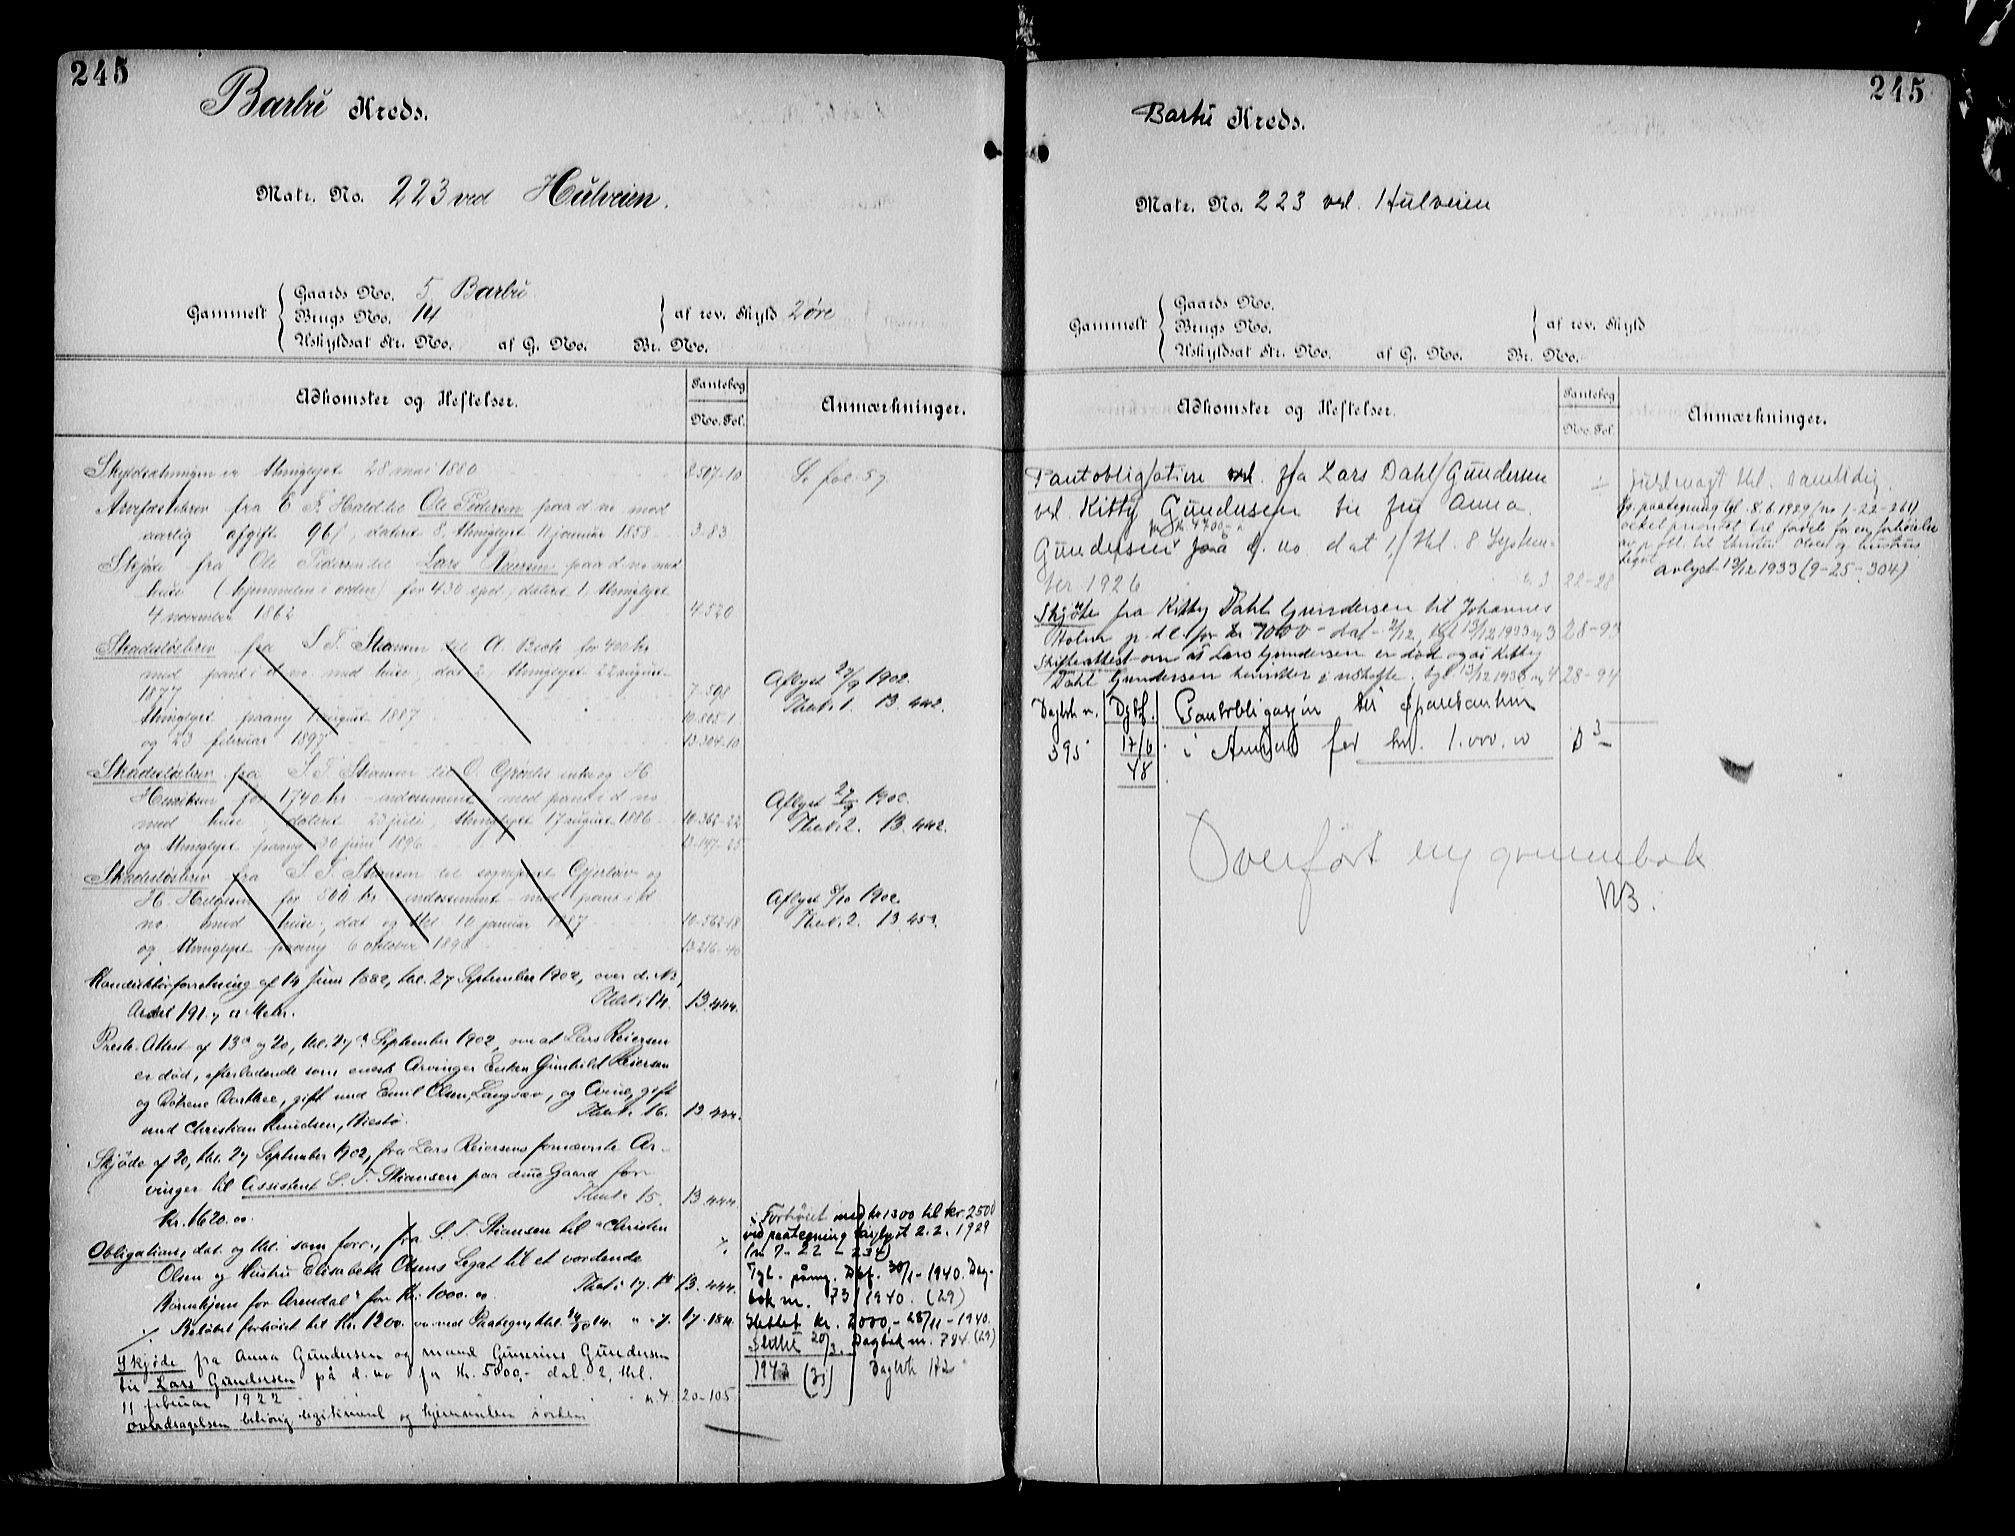 245
Barbu Kreds.
Matr. No. 223 ved Hulveien.
Gaards No. 5 Barbu
Gammelt Brugs No. 14 af rev. Skyld 2 øre
Uskyldsat Str. No. af G. No. Br. No.
Adkomster og Heftelser. Pantebog No. Fol. Anmærkninger.
Skyldsætningen er thinglyst 28 mai 1880 8-507-10 Se fol. 59
Arvefæstebrev fra E. F. Hald til Ole Pedersen paa d no mod
aarlig afgift 96 , dateret 8, thinglyst 11 januar 1858 3-83
Skjøde fra Ole Pedersen til Lars paa d no med
huse (hjemmelen i orden) for 430 spd, dateret 1, thinglyst
4 november 1862 4-520
Skadesløsbrev fra S. T. Stiansen til A. Bech for 400 kr
med pant i d no med huse, dat 2, thinglyst 22 august
1877 7-598 Aflyst 27/9 1902.
thinglyst paany august 1887 10-505-1 Thet i 1. 13.442.
og 23 februar 1897 13-304-10
Skadesløsbrev fra S. T. Stiansen til O. enke og H.
Henriksen for 1740 kr. - endossement - med pant i d no
med huse, dateret 23 juli, thinglyst 17 august 1886 10-362-22 Aflyst 27/9 1902.
og thinglyst paany 30 juni 1896 13-147-25 Thet i 2. 13.442.
Skadesløsbrev fra S. T. Stiansen til sogneprest Gjerløv og
H. for 500 kr - endossement - med pant i d
no med huse, dat og thl 10 januar 1887 10-562-18 Aflyst 8/10 1902.
og thinglyst paany 6 oktober 1896 13-216-40 Thet i 2. 13.452.
Konduktørforretning af 14 Juni 1882, thl. 27 September 1902, over d. No,
Areal 191.7 Metr. Thet i 14. 13.444.
Preste-Attest af 13de og 20, thl. 27 September 1902, om at Lars Reiersen
er død, efterladende som eneste Arvinger Enken Gunhild Reiersen
og Døtrene Dorthea, gift med Emil Olsen, Langsæv, og Oline, gift
med Christian Knudsen, Thet i 16. 13.444.
Skjøde af 20, thl. 27 September 1902, fra Lars Reiersens fornævnte Ar-
vinger til Assistent S. T. Stiansen paa denne Gaard for
Kr. 1620.00. Thet i 15. 13.444.
Obligation, dat. og thl. som forr., fra S. T. Stiansen til "Christen
Olsen og Hustru Elisabeth Olsens Legat til et vordende
Børnehjem for Arendal" for Kr. 1000.00. Thet i 17. 13.444.
Beløbet forhøiet til Kr. 1200.00 ved Paategn. thl. 17-184.
Forhøiet med kr 1300 til kr. 2500
ved paategning tinglyst 2.2. 1929
(nr 7-22-234)
Tgl. påny. Dbf. 30/1-1940. Dag-
bok nr. 73 1940. (29)
Slettet kr. 2000,- 28/11-1940.
Dagbok nr. 784. (29)
Slettet 20/2.
1943 (31) Dagbok 172
Skjøde fra Anna Gundersen og mand Gunerius Gundersen
til Lars Gundersen på d. no for kr. 5000,- dat. 2, thl.
11 februar 1922 nr. 4. 20-105
overdragelsen behørig legitimert og hjemmelen i orden
245
Barbu Kreds.
Matr. No. 223 ved. Hulveien
Gaards No.
Gammelt Brugs No. af rev. Skyld
Uskyldsat Str. No. af G. No. Br. No.
Adkomster og Heftelser. Pantebog No. Fol. Anmærkninger.
Pantobligation fra Lars Dahl Gundersen
ved Kitty Gundersen til fru Anna
for kr 4700.-
Gundersen på d. no. dat 1, thl. 8 Septem-
ber 1926 nr 3 22-28
thl. samtidig.
Ifg. paategning tgl. 8.6.1929 (nr 1-22-264)
veket prioritet til fordel for en forhøielse
av p.obl. til Christen Olsen og hustrus
legat avlyst 13/12 1933 (9-25-304)
Skjøte fra Kitty Dahl Gundersen til Johannes
Holm p. d. e. for kr 7000- dat 2/12, tgl 13/12 1933 nr 3 28-93
Skifteattest om at Lars Gundersen er død og at Kitty
Dahl Gundersen hensitter i uskifte. tgl 13/12 1933 nr 4 28-94
Dagbk nr. Dgbf. Pantobligasjon til Sparebanken
395 17/6 48 i Arendal for kr. 1.000.00 D 3
Overført ny grunnbok
NB.